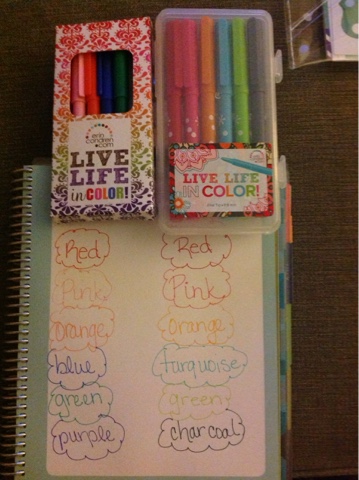 erin
condren
.com
LIVE
LIFE
in COLOR!
LIVE LIFE
IN COLOR!
Red
Pink
Orange
blue
green
purple
Red
Pink
orange
turquoise
green
charcoal